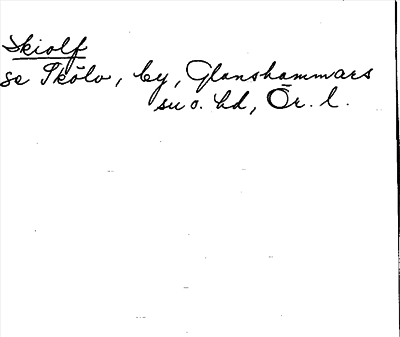 Skiolf
se Skölv, by, Glanshammars
sn o. hd, Ör. l.